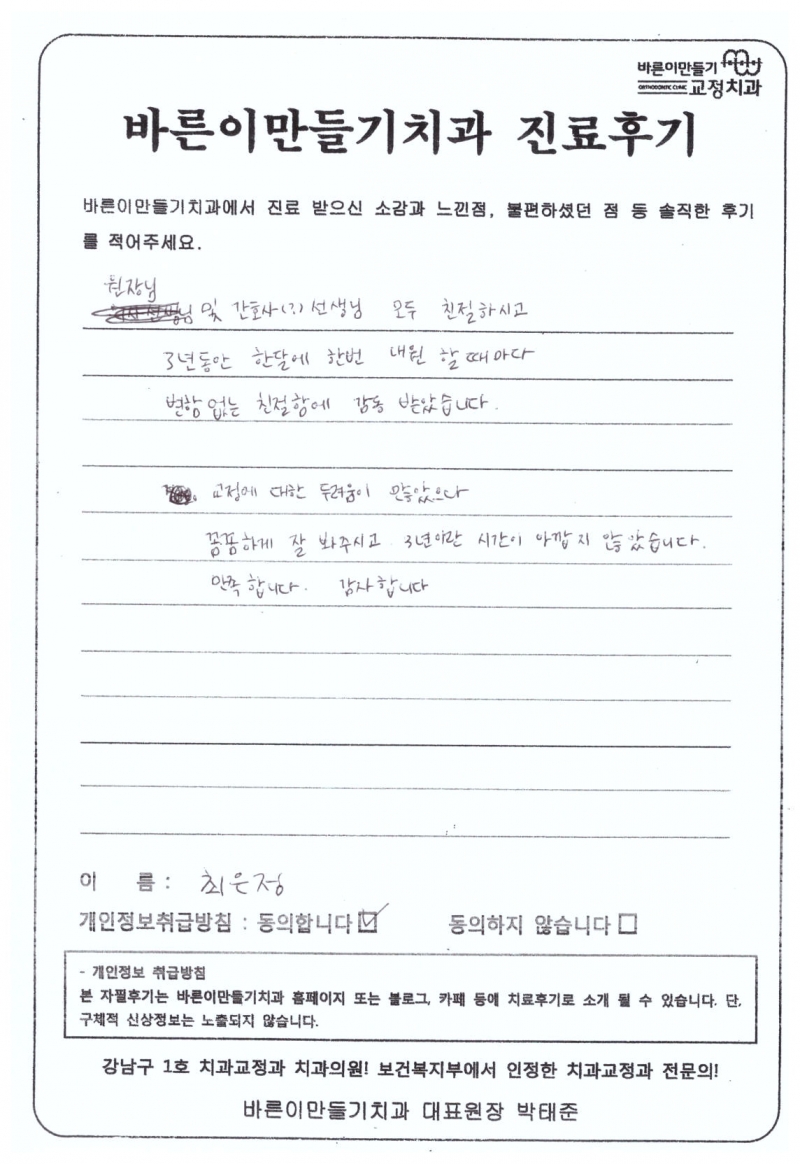 바른이만들기
ORTHODONTIC CLINIC 교정치과
바른이만들기치과 진료후기
바른이만들기치과에서 진료 받으신 소감과 느낀점, 불편하셨던 점 등 솔직한 후기
를 적어주세요.
원장님
및 간호사(?) 선생님 모두 친절하시고
3년동안 한달에 한번 내원 할때마다
변함없는 친절함에 감동 받았습니다.
교정에 대한 두려움이 많았으나
꼼꼼하게 잘 봐주시고 3년이란 시간이 아깝지 않았습니다.
만족합니다. 감사합니다
이 름 : 최은정
개인정보취급방침 : 동의합니다 ☑ 동의하지 않습니다 □
- 개인정보 취급방침
본 자필후기는 바른이만들기치과 홈페이지 또는 블로그, 카페 등에 치료후기로 소개 될 수 있습니다. 단,
구체적 신상정보는 노출되지 않습니다.
강남구 1호 치과교정과 치과의원! 보건복지부에서 인정한 치과교정과 전문의!
바른이만들기치과 대표원장 박태준